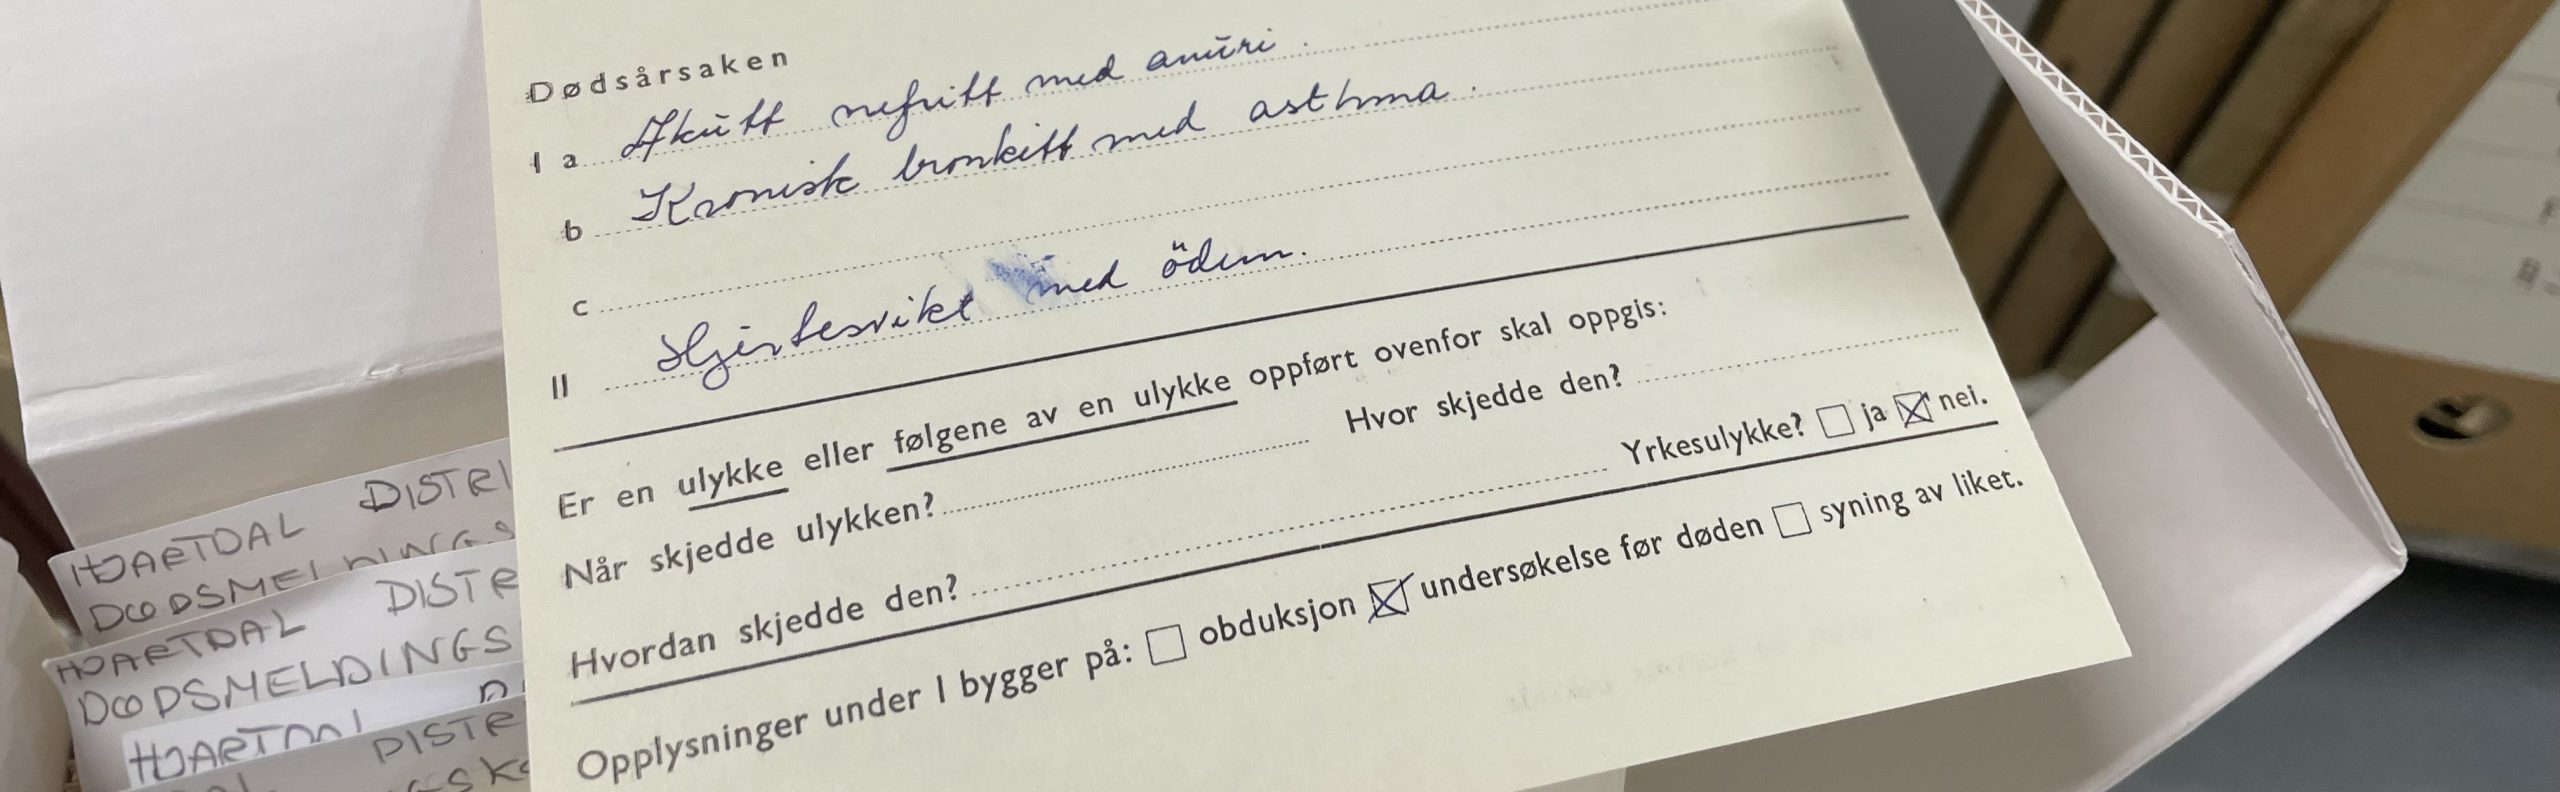 Dødsårsaken
I a Akutt nefritt med anuri.
b Kronisk bronkitt med asthma.
c
II Hjertesvikt med ödem.
Er en ulykke eller følgene av en ulykke oppført ovenfor skal oppgis:
Når skjedde ulykken? Hvor skjedde den?
Hvordan skjedde den? Yrkesulykke? ☐ ja ☒ nei.
Opplysninger under I bygger på: ☐ obduksjon ☒ undersøkelse før døden ☐ syning av liket.
HJARTDAL DISTRI
DØDSMELDINGS
HJARTDAL DISTR
DØDSMELDINGS
HJARTDAL
DISTR